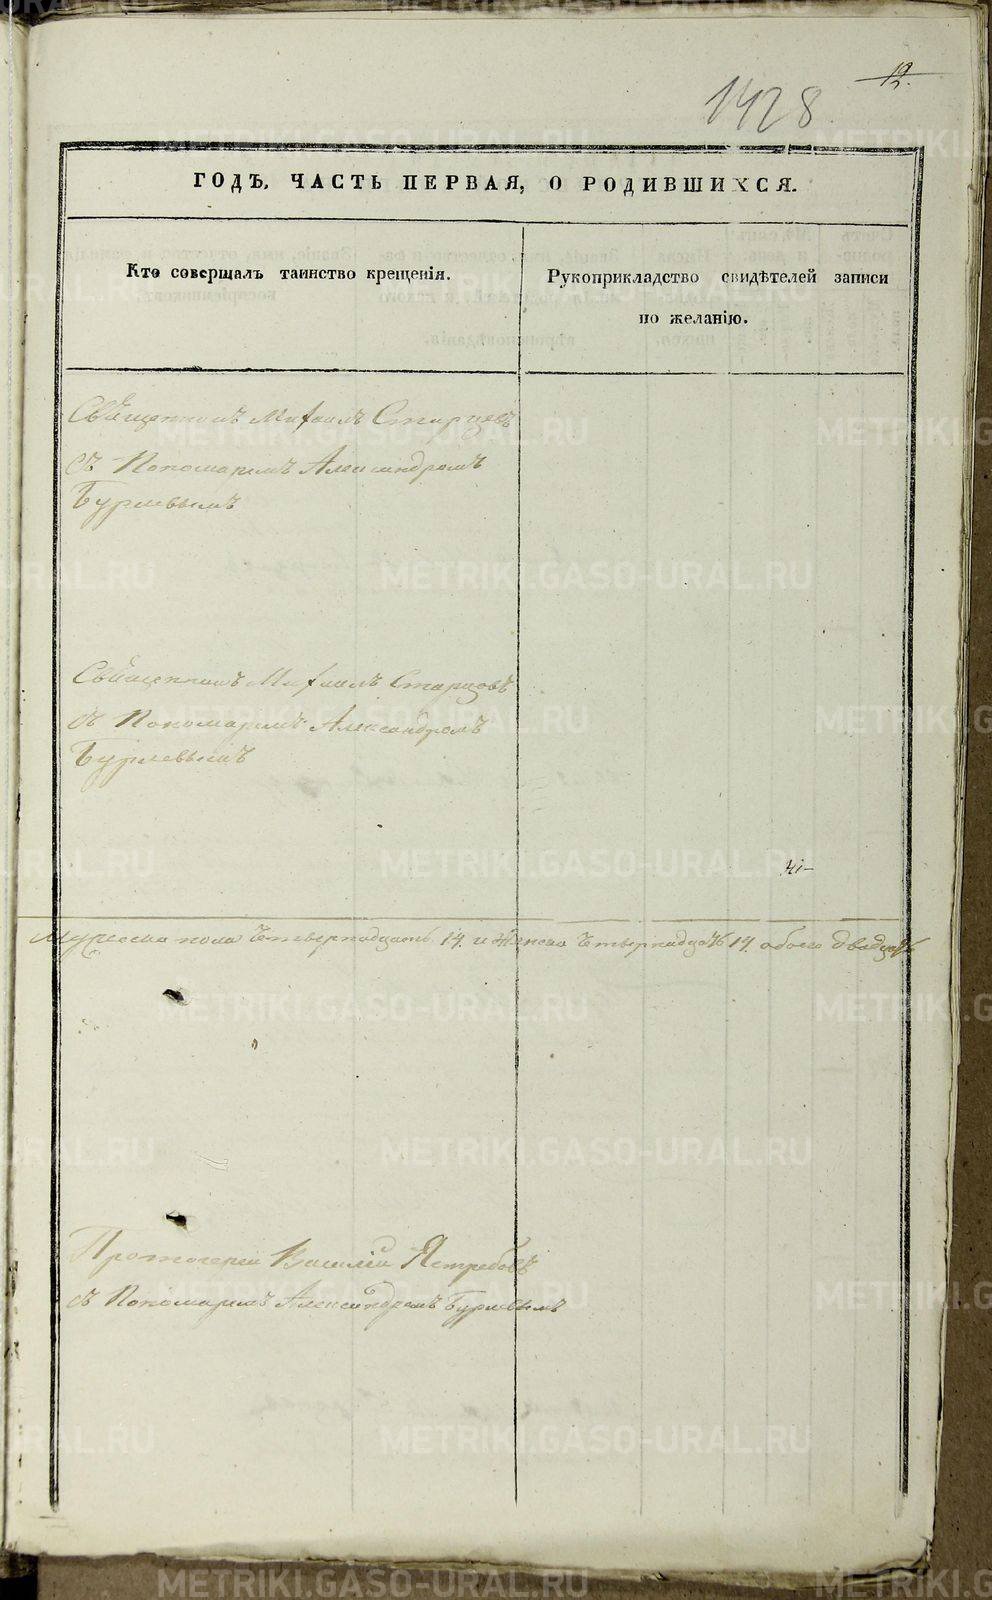 1428
12.
ГОДЪ, ЧАСТЬ ПЕРВАЯ, О РОДИВШИХСЯ.
Кто совершалъ таинство крещенія.
Рукоприкладство свидѣтелей записи
по желанію.
Священникъ Михаилъ Старцевъ
съ Пономаремъ Александромъ
Бурлевымъ
Священникъ Михаилъ Старцовъ
съ Пономаремъ Александромъ
Бурлевымъ
Мужеска пола Четырнадцать 14. и Женска Четырнадцать 14. обоего двадцать
Протоіерей Василій Ястребовъ
съ Пономаремъ Александромъ Бурлевымъ
METRIKI.GASO-URAL.RU